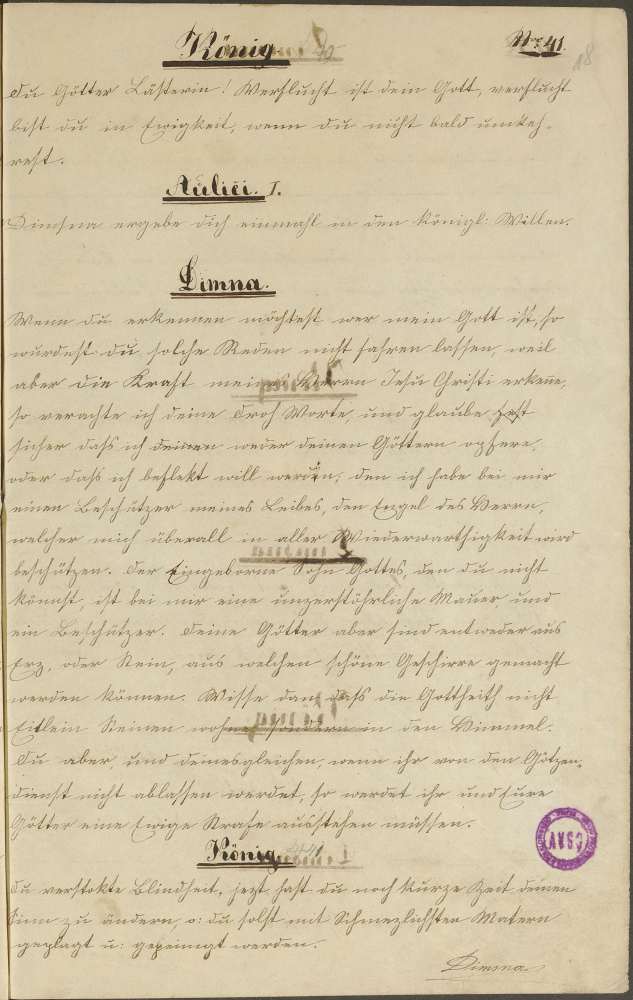 König
Nr: 41.
18
Du Götter Lästerin! Verflucht ist dein Gott, verflucht
bist du in Ewigkeit, wenn du nicht bald umkeh-
rest.
Aulici. I.
Dimna ergebe dich einmahl in den königl: Willen.
Dimna.
Wenn du erkennen möchtest wer mein Gott ist, so
wurdest du solche Reden nicht fahren lassen, weil
aber die Kraft meines Herrn Jesu Christi erkenne,
so verachte ich deine Droh Worte, und glaube fest
sicher daß ich weder deinen Göttern opfere,
oder daß ich beflekt will werden, den ich habe bei mir
einen Beschützer meines Leibes, den Engel des Herrn,
welcher mich überall in aller Wiederwarthigkeit wird
beschützen. Der Eingeborne Sohn Gottes, den du nicht
könnst, ist bei mir eine unzerstöhrliche Mauer, und
ein Beschützer. Deine Götter aber sind entweder aus
Erz, oder Stein, aus welchen schöne Geschirre gemacht
werden können. Wisse dan, daß die Gottheith nicht
in den Himmel.
Du aber, und deinesgleichen, wenn ihr von den Götzen-
dienst nicht ablassen werdet, so werdet ihr und Eure
Götter eine Ewige Strafe ausstehen müssen.
König
Du verstokte Blindheit, jezt hast du noch kurze Zeit deinen
Sinn zu ändern, o: du solst mit Schmezlichster Matern
geplagt u: gepeinigt werden.
Dimna
ČSAV